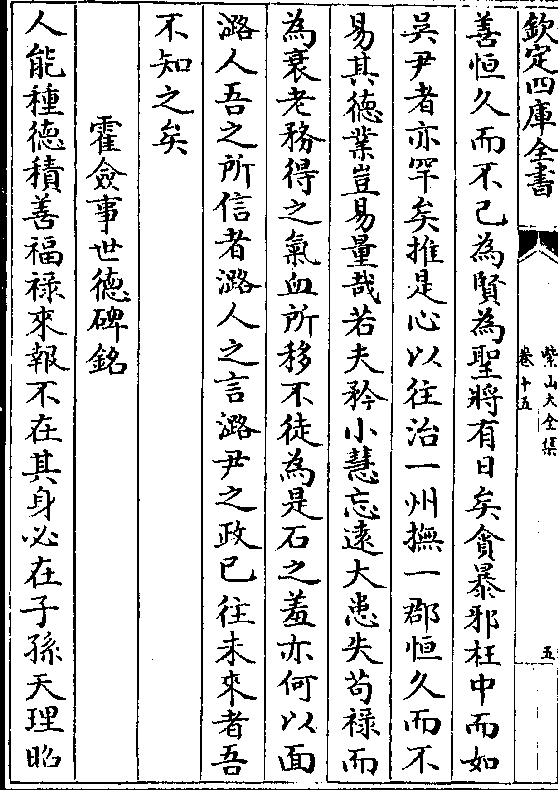 欽定四庫全書
紫山大全集
卷十五
五
善恒久而不已為賢為聖將有日矣貪暴邪枉中而如
吳尹者亦罕矣推是心以往治一州撫一郡恒久而不
易其徳業豈易量哉若夫矜小慧忘遠大患失苟祿而
為衰老務得之氣血所移不徒為是石之羞亦何以面
潞人吾之所信者潞人之言潞尹之政已往未來者吾
不知之矣
霍僉事世徳碑銘
人能種徳積善福祿來報不在其身必在子孫天理昭